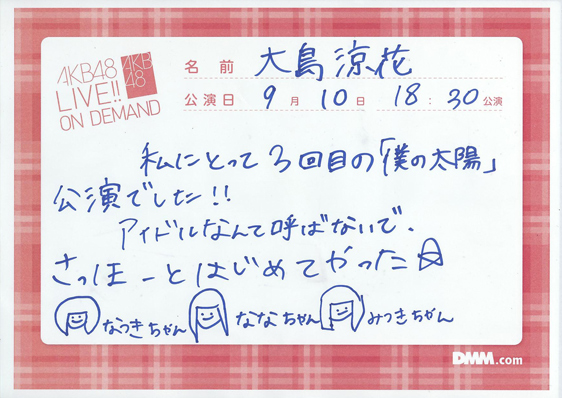 AKB48
LIVE!!
ON DEMAND
AKB
48
名前 大島涼花
公演日 9月10日 18:30公演
私にとって3回目の「僕の太陽」
公演でした!!
アイドルなんて呼ばないで、
さっほーとはじめてやった☆
なつきちゃん ななちゃん みつきちゃん
DMM.com